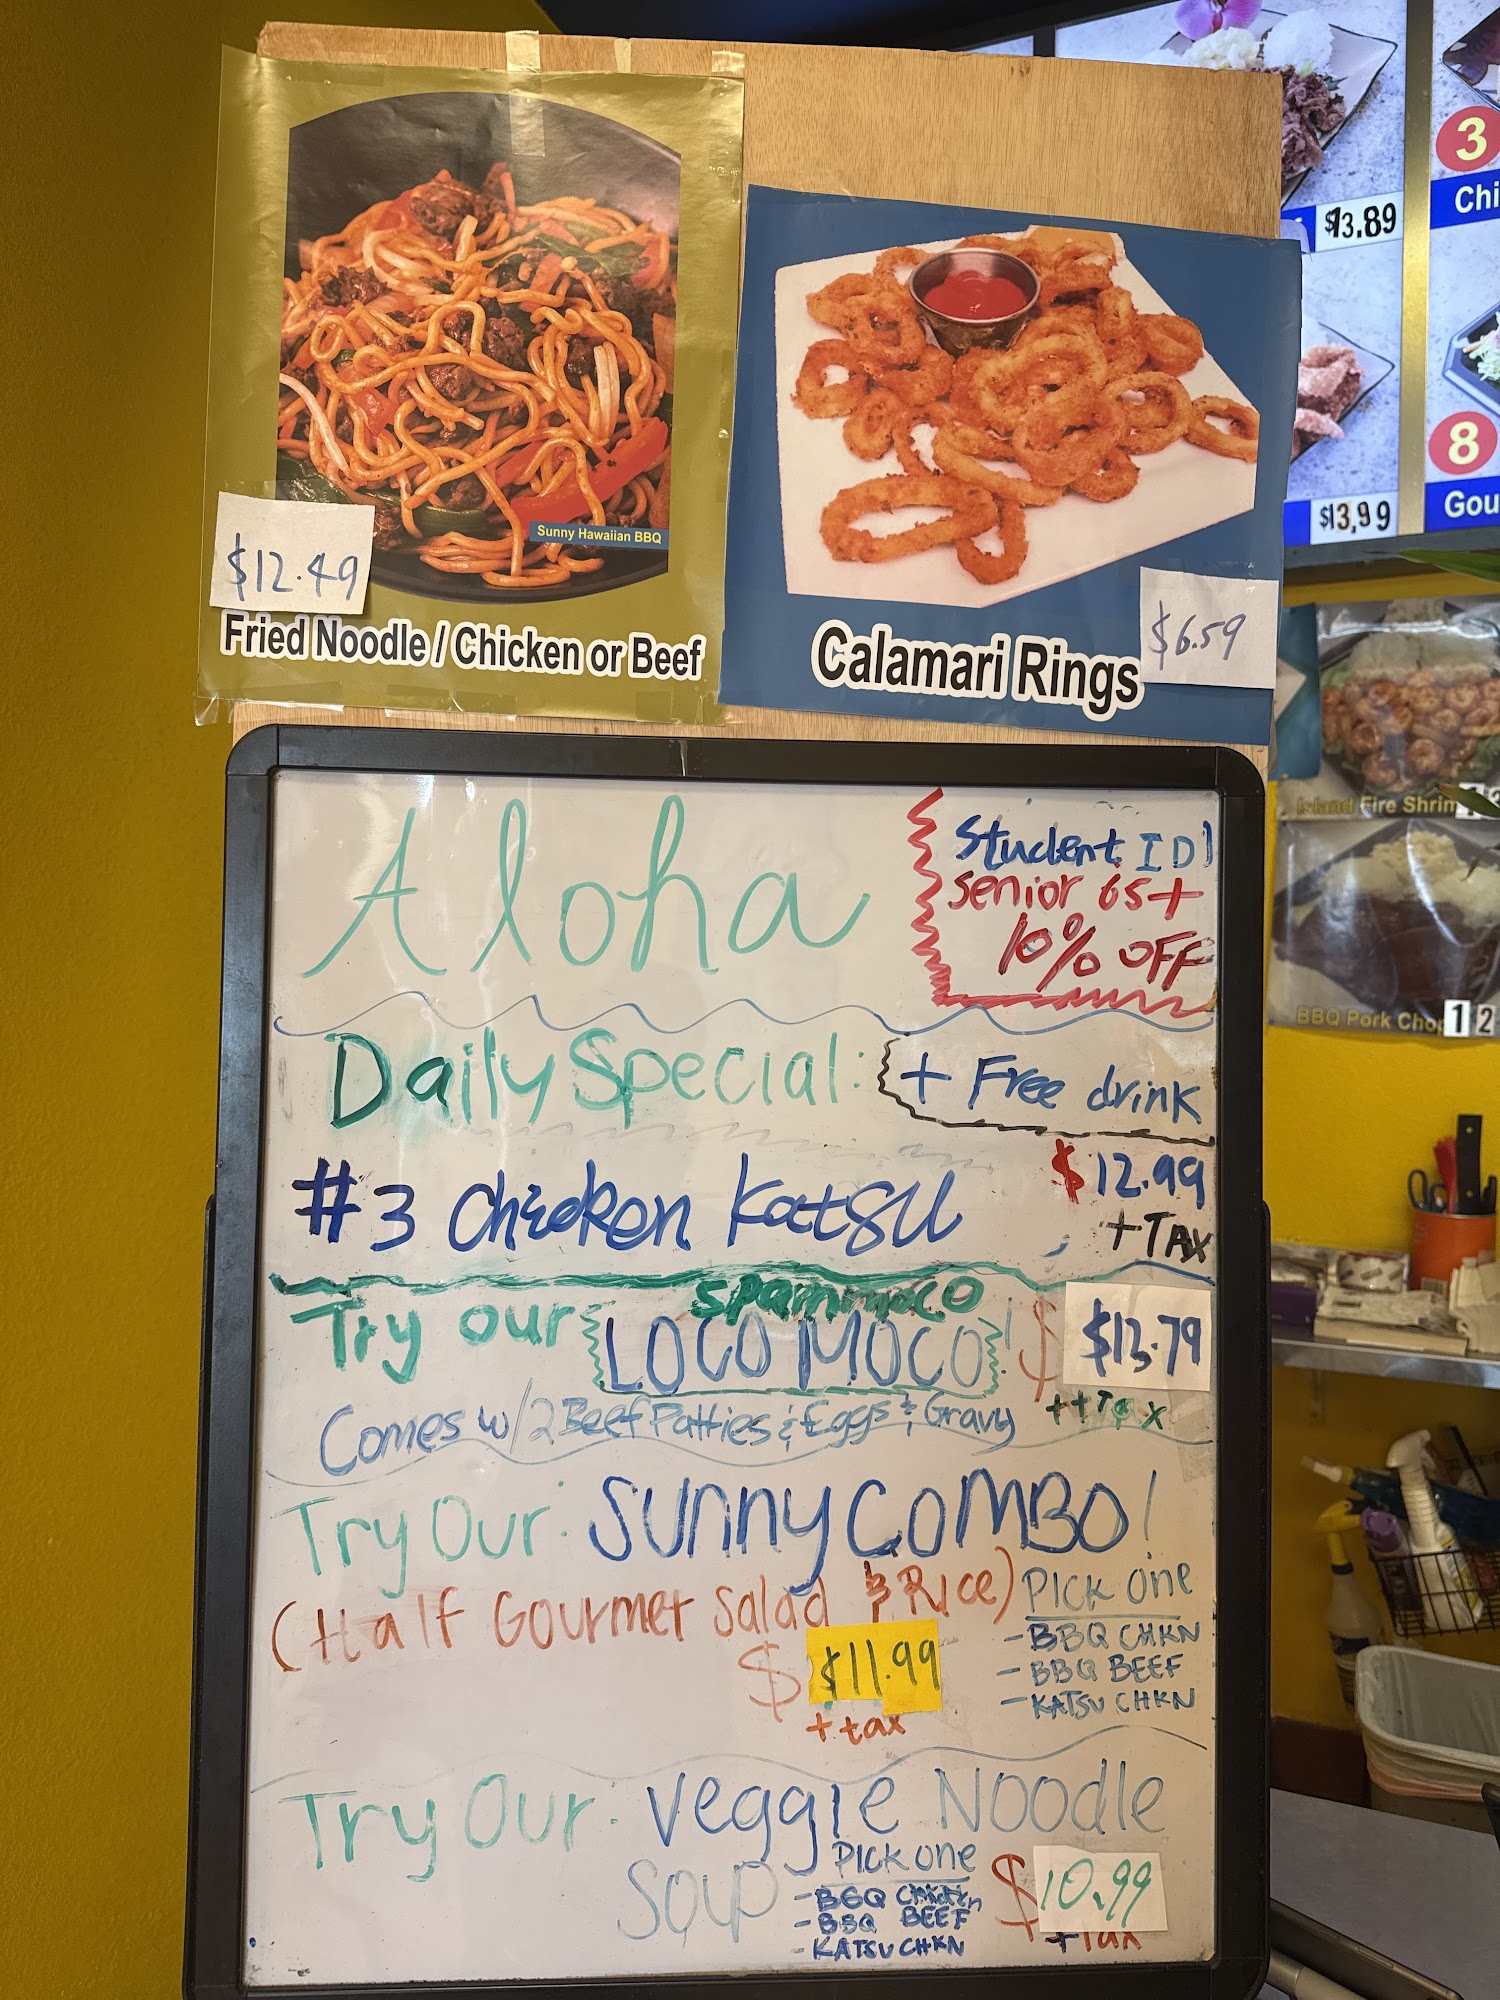 Sunny Hawaiian BBQ
$12.49
Fried Noodle / Chicken or Beef
Calamari Rings
$6.59
3
Chi
$13.89
8
$13,99
Gou
Island Fire Shrim
BBQ Pork Chop 12
Aloha
Student ID
Senior 65+
10% OFF
Daily Special:
+ Free drink
#3 chicken Katsu
$12.99
+TAX
Try our
spam moco
LOCO MOCO!
$
$13.79
++Tax
Comes w/ 2 Beef Patties & Eggs & Gravy
Try Our: Sunny COMBO!
(Half Gourmet Salad & Rice)
$ $11.99
+tax
PICK one
- BBQ CHKN
- BBQ BEEF
- KATSU CHKN
Try Our: Veggie Noodle
Soup
PICK one
- BBQ Chicken
- BBQ BEEF
- KATSU CHKN
$ 10.99
+Tax